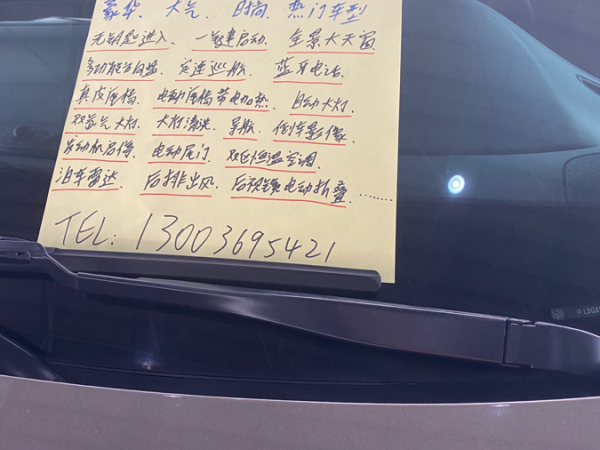 豪华、大气、时尚、热门车型
无钥匙进入、一键启动、全景大天窗
多功能方向盘、定速巡航、蓝牙电话
真皮座椅、电动座椅带电加热、自动大灯
双氙气大灯、大灯清洗、导航、倒车影像
发动机启停、电动尾门、双区恒温空调
泊车雷达、后排出风、后视镜电动折叠………
TEL: 13003695421
LSGX